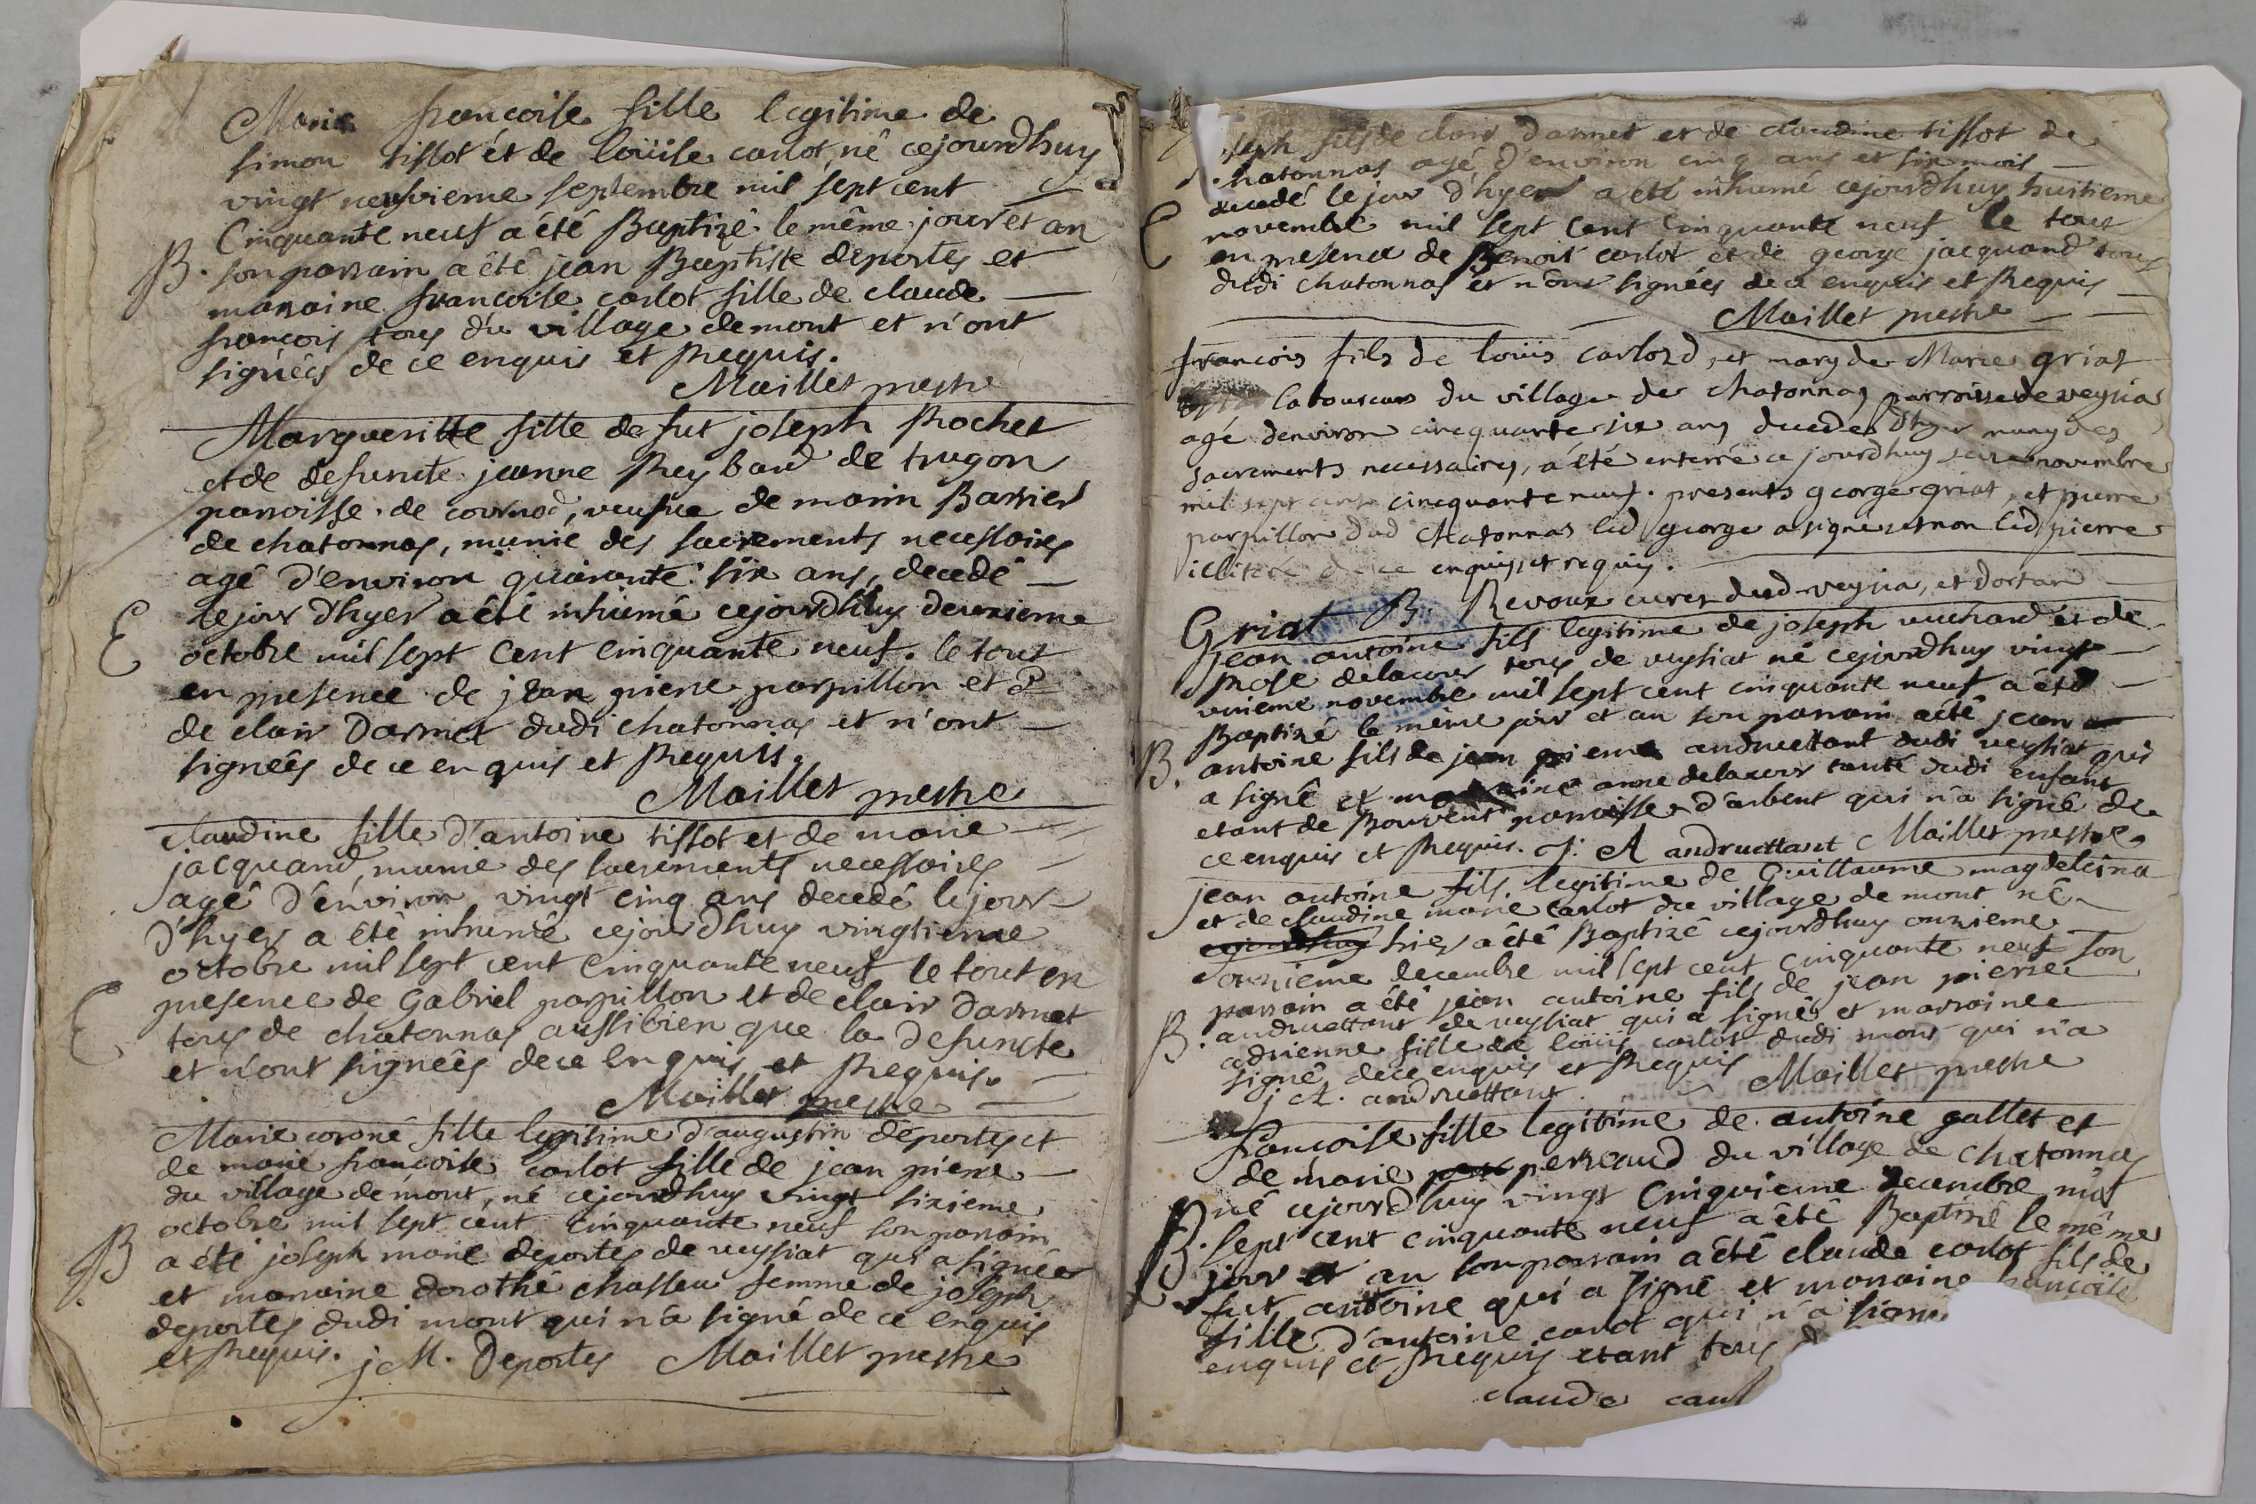 Marie francoise fille legitime de
simon tissot ét de loüise carlot, né cejourdhuy
vingt neufvieme septembre mil sept cent
Cinquante neuf a été Baptizé le même jour et an
B. son parrain a été jean Baptiste déportes et
maraine francoise carlot fille de claude
francois tous du village demont et n'ont
signéés de ce enquis et Requis.
Maillet prestre
Margueritte fille de fut joseph Rochet
et de defuncte jeanne Reybard de trugon
parroisse de cornod, veufue de marin Barrier
de chatonnas, munie des sacrements necessaires
agé d'environ quarante six ans, decedé
le jour d'hyer a été inhumé cejourdhuy deuxieme
E octobre mil sept cent cinquante neuf. le tout
en presence de jean pierre parpillon et
de clair Darmet dudi chatonnas et n'ont
signéés de ce enquis et Requis.
Maillet prestre
claudine fille d'antoine tissot et de marie
jacquand, munie des sacrements necessaires
agé d'énviron vingt cinq ans decedé le jour
d'hyer a été inhumé cejourdhuy vingtieme
octobre mil sept cent cinquante neuf le tout en
E presence de Gabriel parpillon et de clair Darmet
tous de chatonnas aussibien que la defuncte
et n'ont signéés de ce enquis et Requis.
Maillet prestre
Marie coroné fille legitime d'augustin déportes et
de marie francoise carlot fille de jean pierre
du village demont, né cejourdhuy vingt sixieme
octobre mil sept cént cinquante neuf son parrain
B a été joseph marie deportes de veysiat qui a signée
et marraine dorothé chasseu femme de joseph
deportes dudi mont qui n'a signé de ce enquis
et Requis. j M. Deportes Maillet prestre
seph fils de clair Darmet et de claudine tissot de
chatonnas agé d'environ cinq ans et six mois
decedé le jour d'hyer a été inhumé cejourdhuy huitieme
E novembre mil sept cent cinquante neuf le tout
en presence de Benoit carlot et de george jacquand tous
dudi chatonnas et n'ont signéés de ce enquis et Requis
Maillet prestre
francois fils de loüis carlord, et mary de Marie griat
laboureur du village de chatonnas parroisse de veysias
agé denviron cincquante six ans decedé d'hyer muny des
sacrements necessaires, a été enterré ce jourdhuy novembre
mil sept cent cincquante neuf. presents george griat, et pierre
parpillon dud chatonnas led george a signé et non led pierre
illiteré de ce enquis et requis.
Griat B. Revoux curez dud veysia, et dortan
jean antoine fils legitime de joseph vuchard et de
Rose delacour tous de veysiat né cejourdhuy vingt
unieme novembre mil sept cent cinquante neuf a été
Baptizé le même jour et an son parrain a été jean
B. antoine fils de jean pierre andruettant dudi veysiat qui
a signé et marraine anne delacour tante dudi enfant
etant de Bouvent parroisse d'arbent qui n'a signé de
ce enquis et Requis. j: A andruettant Maillet prestre
jean antoine fils legitime de Guillaume magdeleina
et de claudine marie carlot du village de mont né
cejourdhuy hier a été Baptizé cejourdhuy onzieme
onzieme decembre mil sept cent cinquante neuf son
parrain a été jean antoine fils de jean pierre
B. andruettant de veysiat qui a signé et marrainee
adrienne fille de loüis carlot dudi mont qui n'a
signé de ce enquis et Requis Maillet prestre
j A. andruettant
francoise fille legitime de antoine gallet et
de marie perreaud du village de chatonnas
né cejourdhuy vingt cinquieme decembre mil
B. sept cent cinquante neuf a été Baptizé le même
jour et an son parrain a été claude carlot fils de
fut antoine qui a signé et marraine francoise
fille d'antoine carlot qui n'a signé
enquis et Requis etant tous d
claude carl